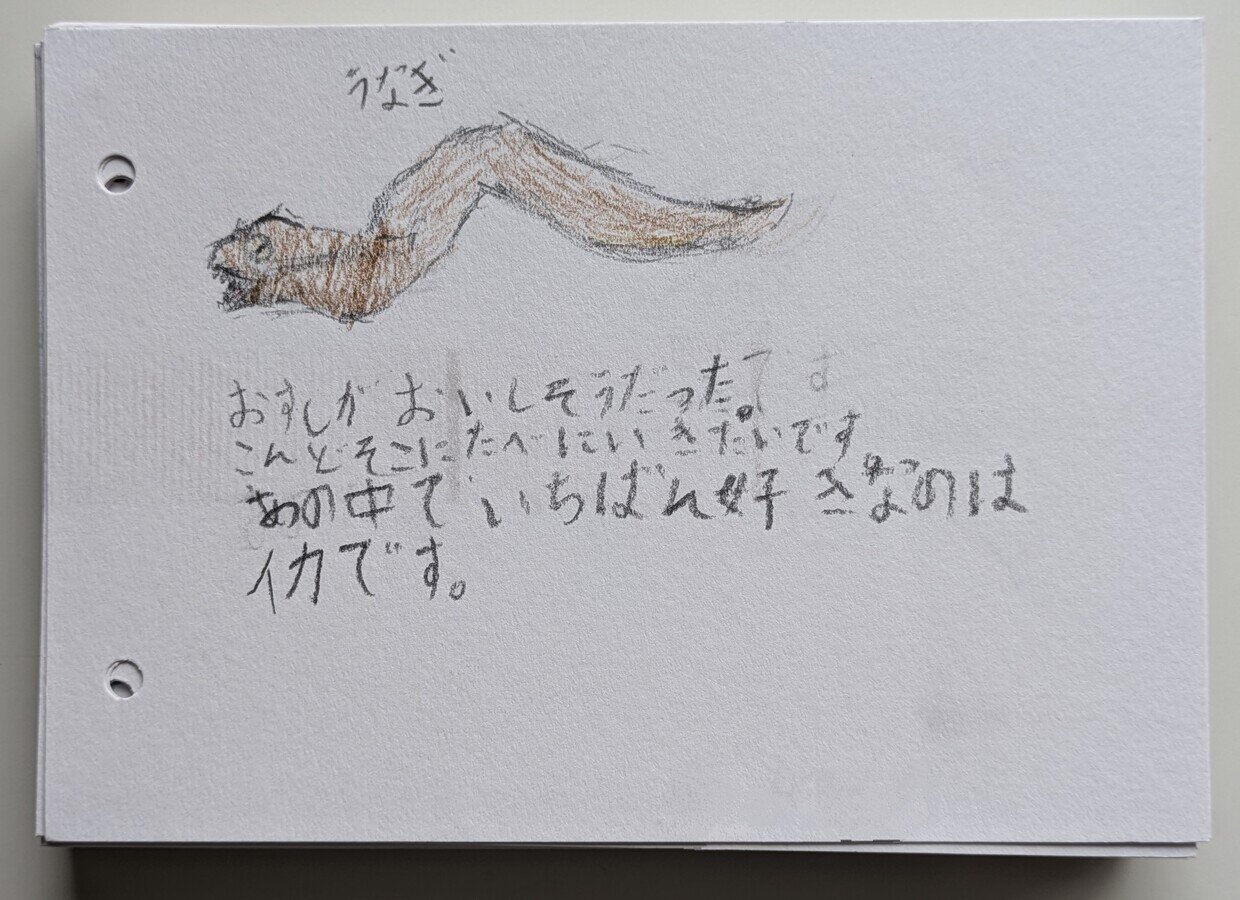 うなぎ
おすしがおいしそうだった。
こんどそこにたべにいきたいです
あの中でいちばん好きなのは
イカです。